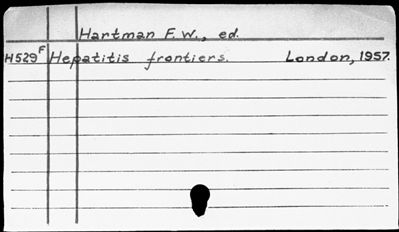 Hartman F.W., ed.
H529F Hepatitis frontiers. London, 1957.